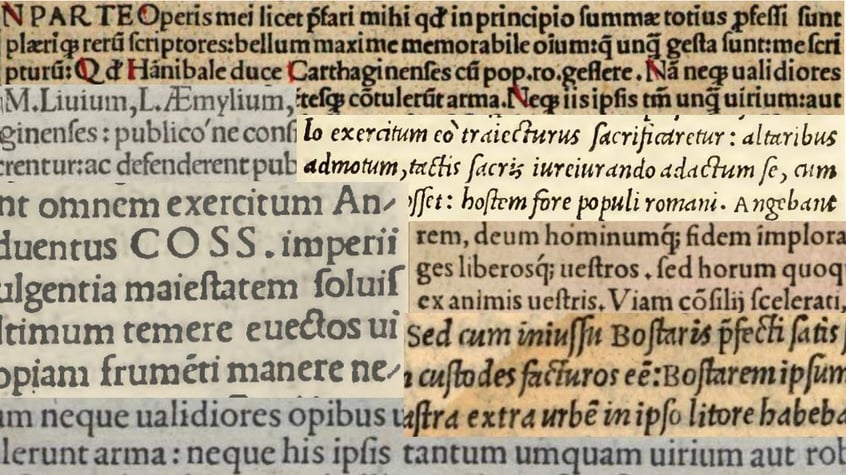 N PARTE Operis mei licet p̃fari mihi qđ in principio summæ totius ꝓfessi sunt
plæriqꝫ rerũ scriptores: bellum maxime memorabile oĩum: q̃ unq̃ gesta sunt: me scri
pturũ: Qđ Hãnibale duce Carthaginenses cũ pop. ro. gessere. Nã neqꝫ ualidiores
tesqꝫ cõtulerũt arma. Neqꝫ iis ipsis tm̃ unq̃ uirium: aut
M. Liuium, L. Æmylium,
ginenses: publico'ne cons
crentur: ac defenderent pub
lo exercitum eò traiecturus sacrificaretur: altaribus
admotum, tactis sacris iureiurando adactum se, cum
osset: hostem fore populi romani. Angebant
nt omnem exercitum An-
duentus COSS. imperii
ulgentia maiestatem soluis
ltimum temere euectos ui
opiam frumẽti manere ne-
rem, deum hominumq; fidem implora
ges liberosq; uestros. sed horum quoq
ex animis uestris. Viam cõsilij scelerati,
Sed cum iniussu Bostaris p̃fecti satis
custodes facturos eẽ: Bostarem ipsum
astra extra urbẽ in ipso litore habeba
um neque ualidiores opibus u
lerunt arma: neque his ipsis tantum umquam uirium aut rob